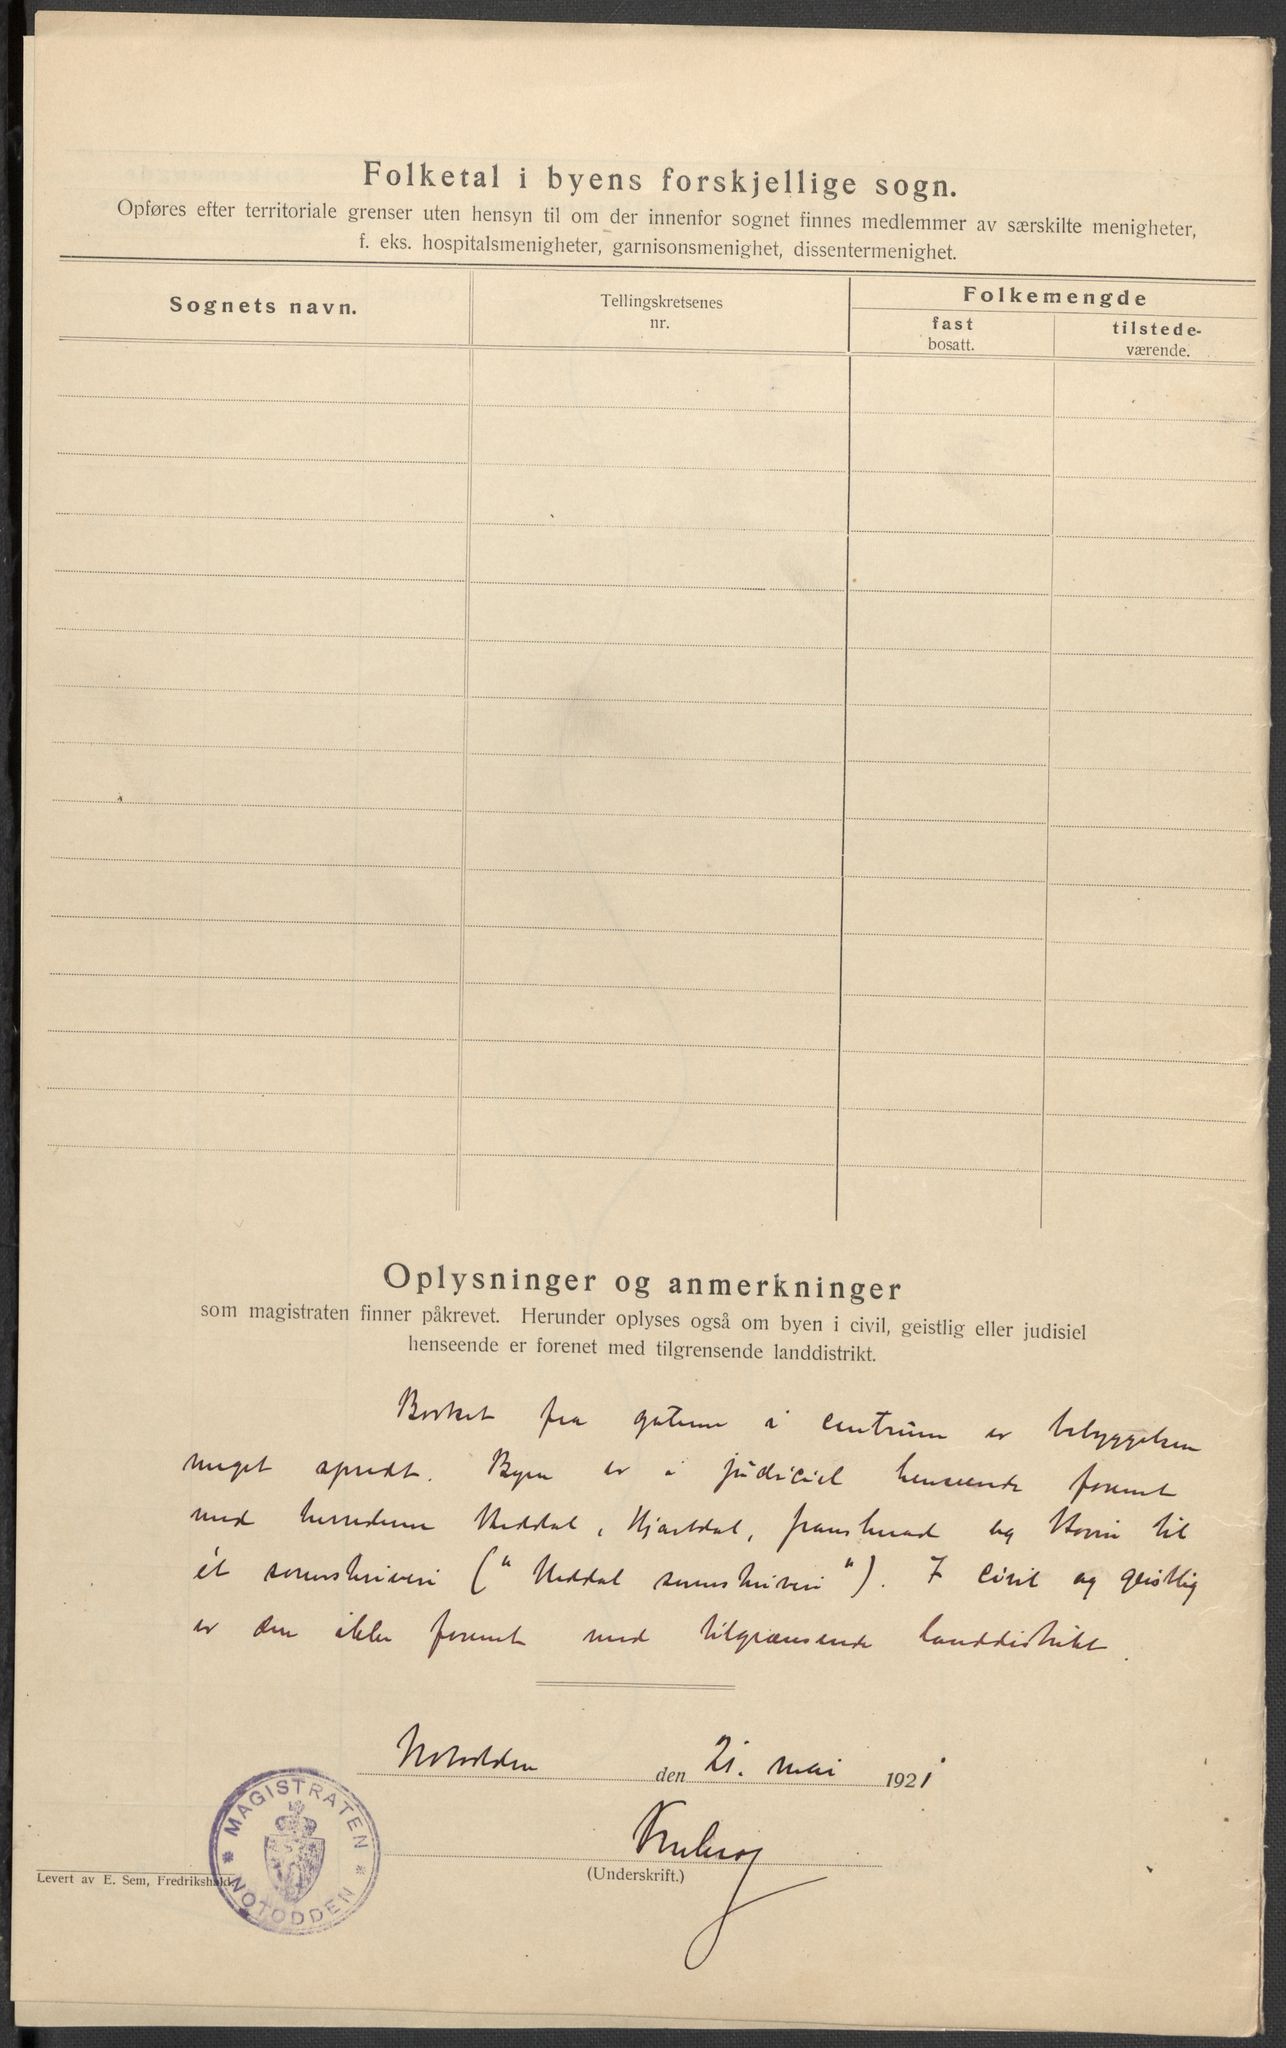 Folketal i byens forskjellige sogn.
Opføres efter territoriale grenser uten hensyn til om der innenfor sognet finnes medlemmer av særskilte menigheter,
f. eks. hospitalsmenigheter, garnisonsmenighet, dissentermenighet.
Sognets navn.
Tellingskretsenes
nr.
Folkemengde
fast
bosatt.
tilstede-
værende.
Oplysninger og anmerkninger
som magistraten finner påkrevet. Herunder oplyses også om byen i civil, geistlig eller judisiel
henseende er forenet med tilgrensende landdistrikt.
Bortset fra gaterne i centrum er bebyggelsen
meget spredt. Byen er i judiciel henseende forenet
med herrederne Heddal, Hjartdal, Gransherad og Hovin til
ét sorenskriveri ("Heddal sorenskriveri"). I civil og geistlig
er den ikke forenet med tilgrænsende landdistrikt.
Notodden den 21. mai 1921
(Underskrift.)
MAGISTRATEN
NOTODDEN
Levert av E. Sem, Fredrikshald